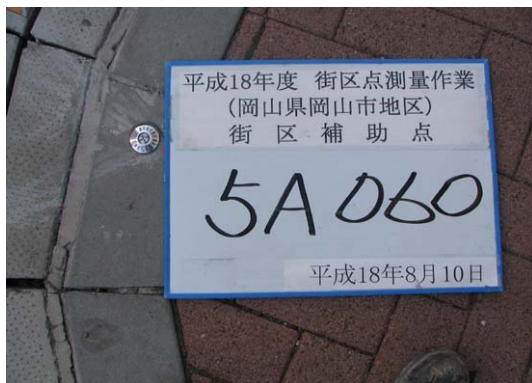 平成18年度 街区点測量作業
(岡山県岡山市地区)
街区補助点
5A060
平成18年8月10日